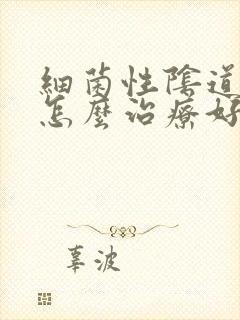 細菌性陰道
怎麼治療好
辜波